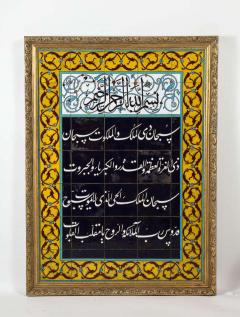 بسم الله الرحمن الرحیم
سبحان ذی الملک والملکوت سبحان
ذی العزة والعظمة والقدرة والکبریاء والجبروت
سبحان الملک الحی الذی لایموت سبوح
قدوس رب الملائکة والروح یا مقلب القلوب